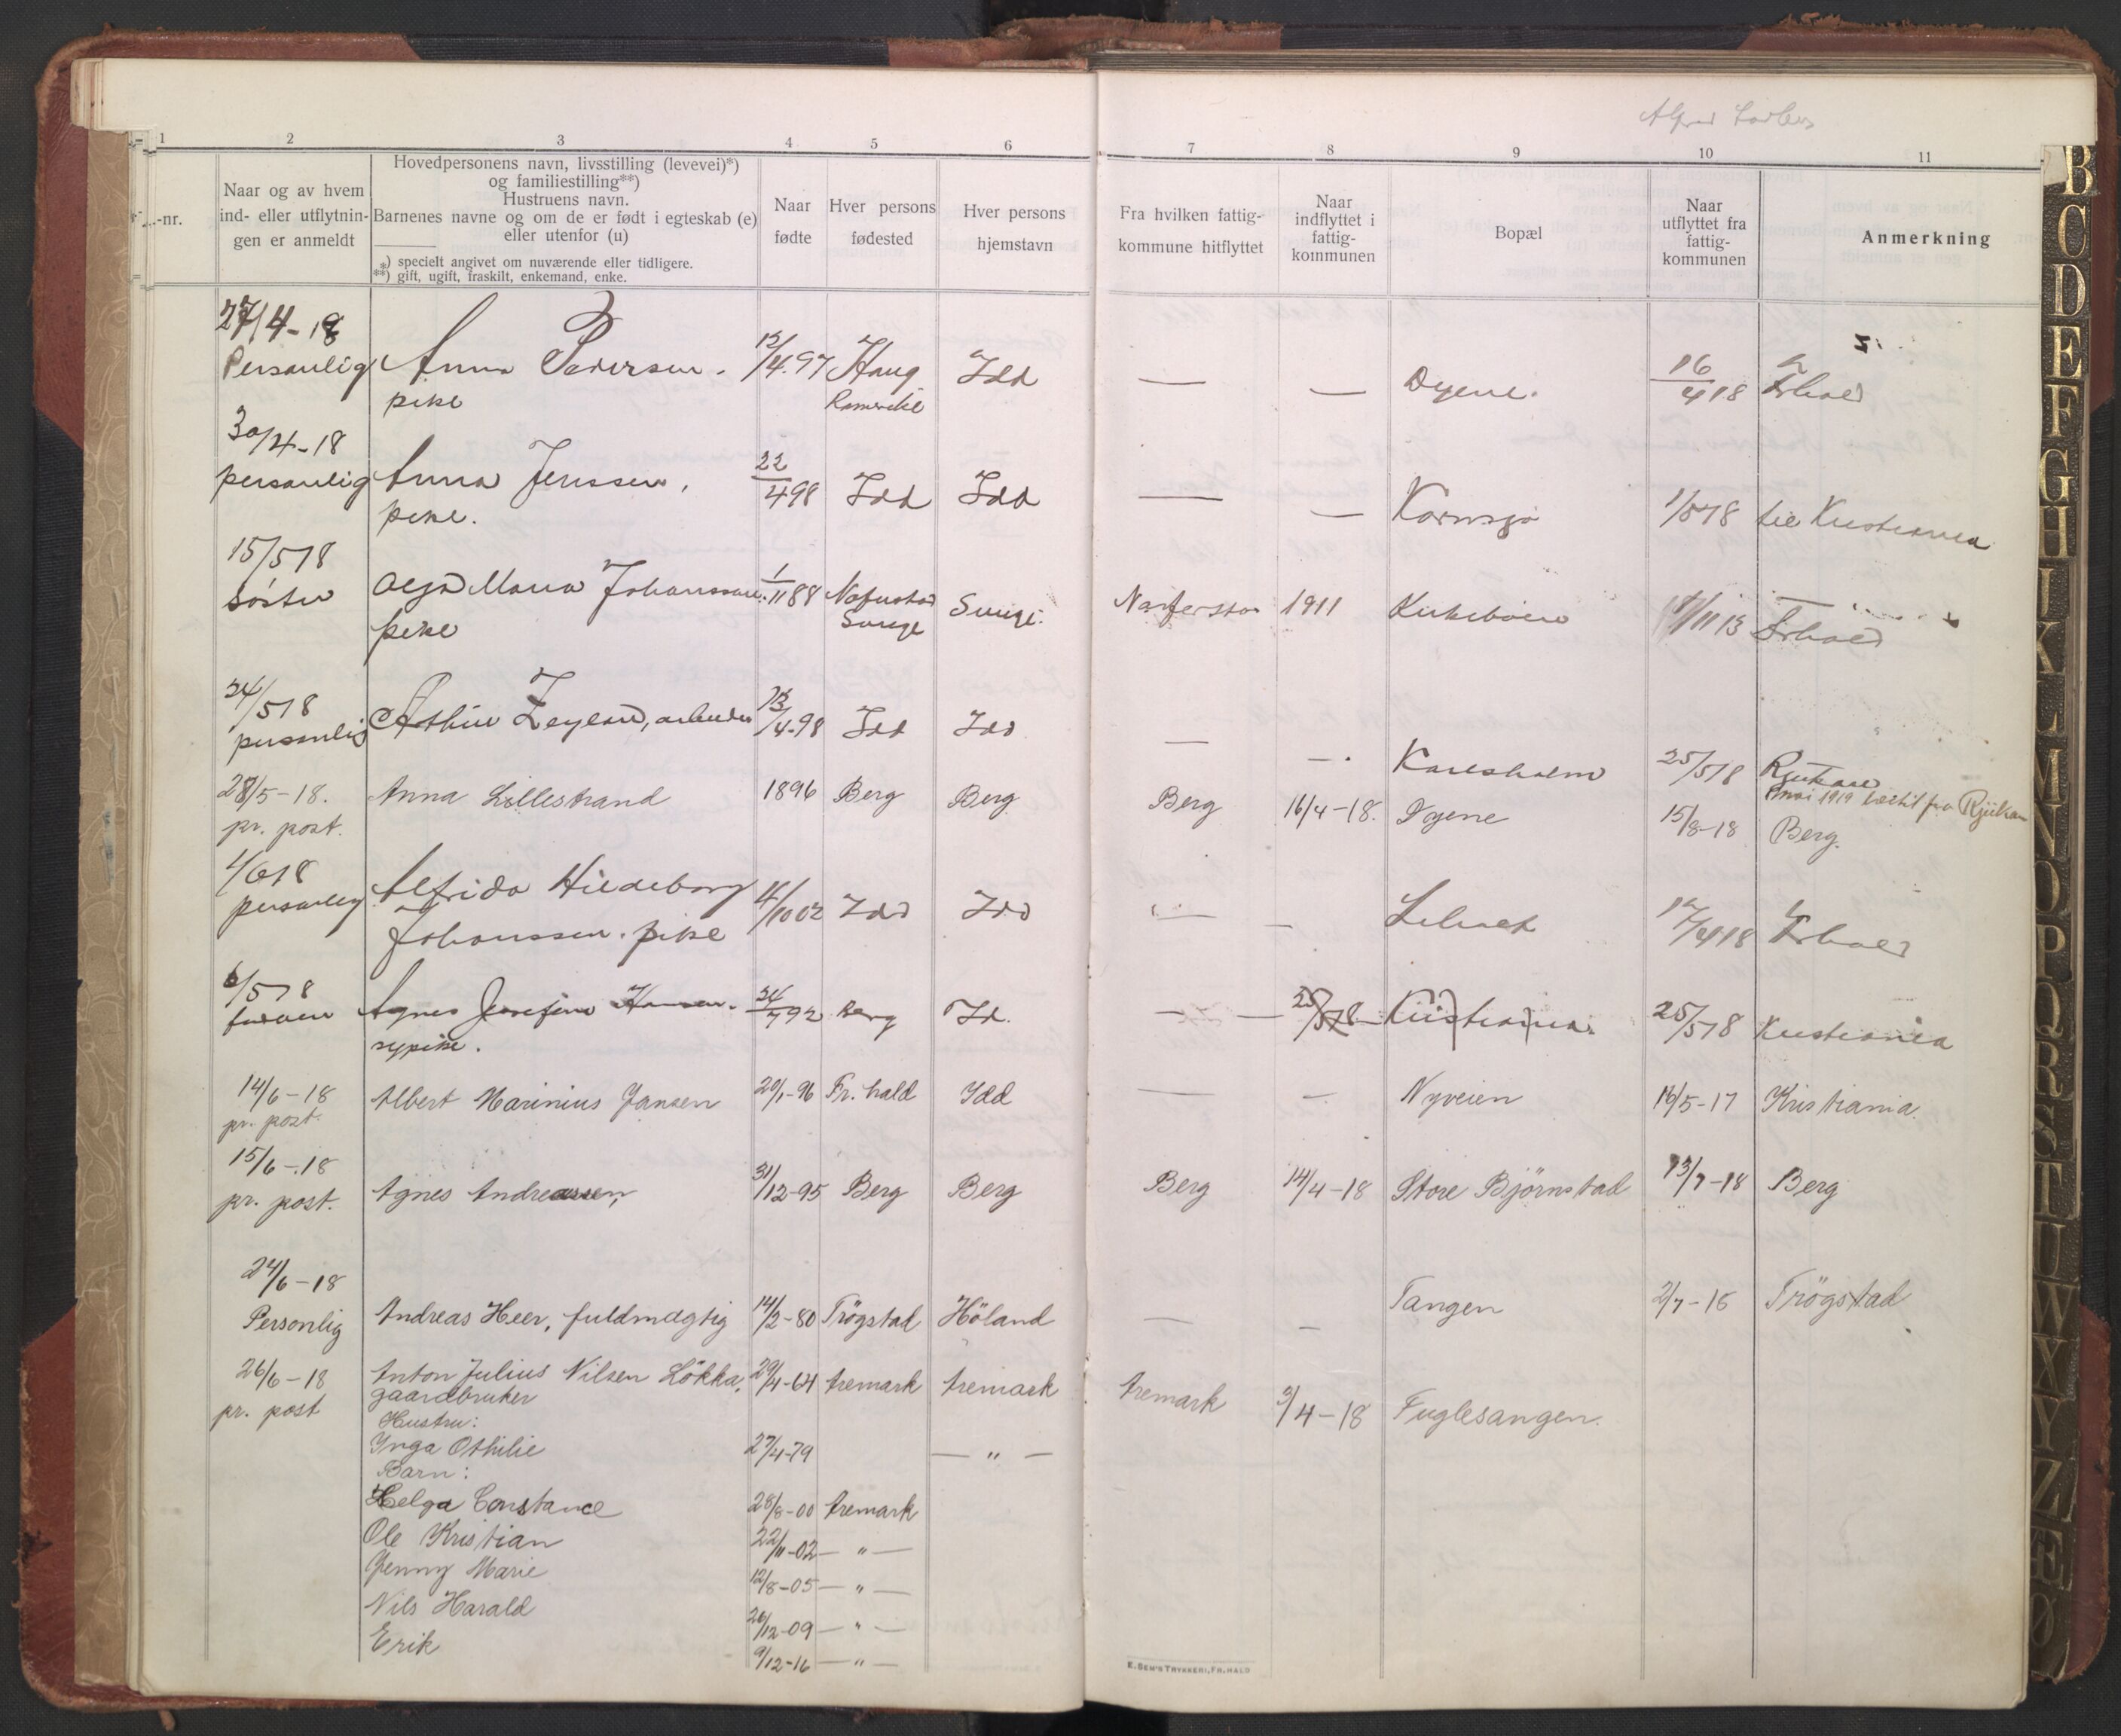 Alfred
1 2 3 4 5 6 7 8 9 10 11
-nr.
Naar og av hvem
ind- eller utflytnin-
gen er anmeldt
Hovedpersonens navn, livsstilling (levevei)*)
og familiestilling**)
Hustruens navn.
Barnenes navne og om de er født i egteskab (e)
eller utenfor (u)
*) specielt angivet om nuværende eller tidligere.
**) gift, ugift, fraskilt, enkemand, enke.
Naar
fødte
Hver persons
fødested
Hver persons
hjemstavn
Fra hvilken fattig-
kommune hitflyttet
Naar
indflyttet i
fattig-
kommunen
Bopæl
Naar
utflyttet fra
fattig-
kommunen
Anmerkning
27/4-18
Personlig Anna Pedersen. 12/4.97 Haug Idd — — Dyene. 16/4 18 Frhald
pike Romerike
30/4-18
personlig Anna Jenssen, 22/4 98 Idd Idd — — Kornsjø 1/5 18 til Kristiania
pike.
15/5 18
søster Olga Maria Johanssen. 1/11 88 Sverige. 1911 Kirkebøen 11 13 Frhald
pike Sverige
24/5 18
personlig Arthur, arbeider /4-98 Idd Idd — — Karlsholm 25/5 18 Rjukan
mai 1919 fra Rjukan
28/5-18. Anna Lillestrand 1896 Berg Berg Berg 16/4-18. Dyene 15/8-18 Berg.
pr. post.
4/6 18
personlig Alfrida Hildeborg 4/10 02 Idd Idd — — 4 18 Frhald
Johanssen. pike
6/5 18
Agnes Josefine Hansen. 24/7 92 Berg Id. — — 25/5 18 Kristiania. 25/5 18 Kristiania
sypike.
14/6-18 Albert Marinius Jansen 20/1-96 Fr. hald Idd — — Nyveien 16/5-17 Kristiania.
pr. post.
15/6-18
pr. post. Agnes Andreassen, 31/12-95 Berg Berg Berg 14/4-18 Store Björnstad 13/7-18 Berg
24/6-18
Personlig Andreas Heer, fuldmægtig 14/2-80 Trögstad Höland — — Tangen 2/7-18 Trögstad
26/6-18 Anton Julius Nilsen Lökka, 29/4-64 Aremark Aremark Aremark 3/4-18 Fuglesangen.
pr. post gaardbruker
Hustru:
Inga Othilie 27/4-79 — " —
Barn:
Helga Constance 28/8-00 Aremark
Ole Kristian 22/11-02 — " —
Jenny Marie 12/8-05 — " —
Nils Harald 26/12-09 — " —
Erik 9/12-16 — " —
E. SEM'S TRYKKERI, FR.HALD
B
C
D
E
F
G
H
I
K
L
M
N
O
P
Q
R
S
T
U
W
X
Y
Z
Æ
Ø